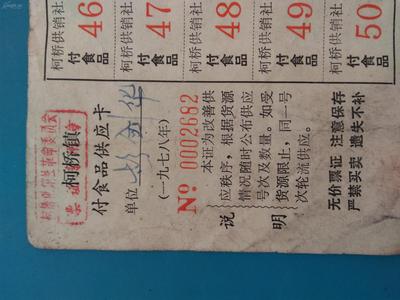 柯桥镇
付食品供应卡
单位
(一九七八年)
№ 0002692
说明
本证为改善供
应秩序，根据货源
情况随时公布供应
号次及数量。如受
货源限止，同一号
次轮流供应。
无价票证 注意保存
严禁买卖 遗失不补
柯桥供销社
付食品
46
柯桥供销社
付食品
47
柯桥供销社
付食品
48
柯桥供销社
付食品
49
柯桥供销社
付食品
50